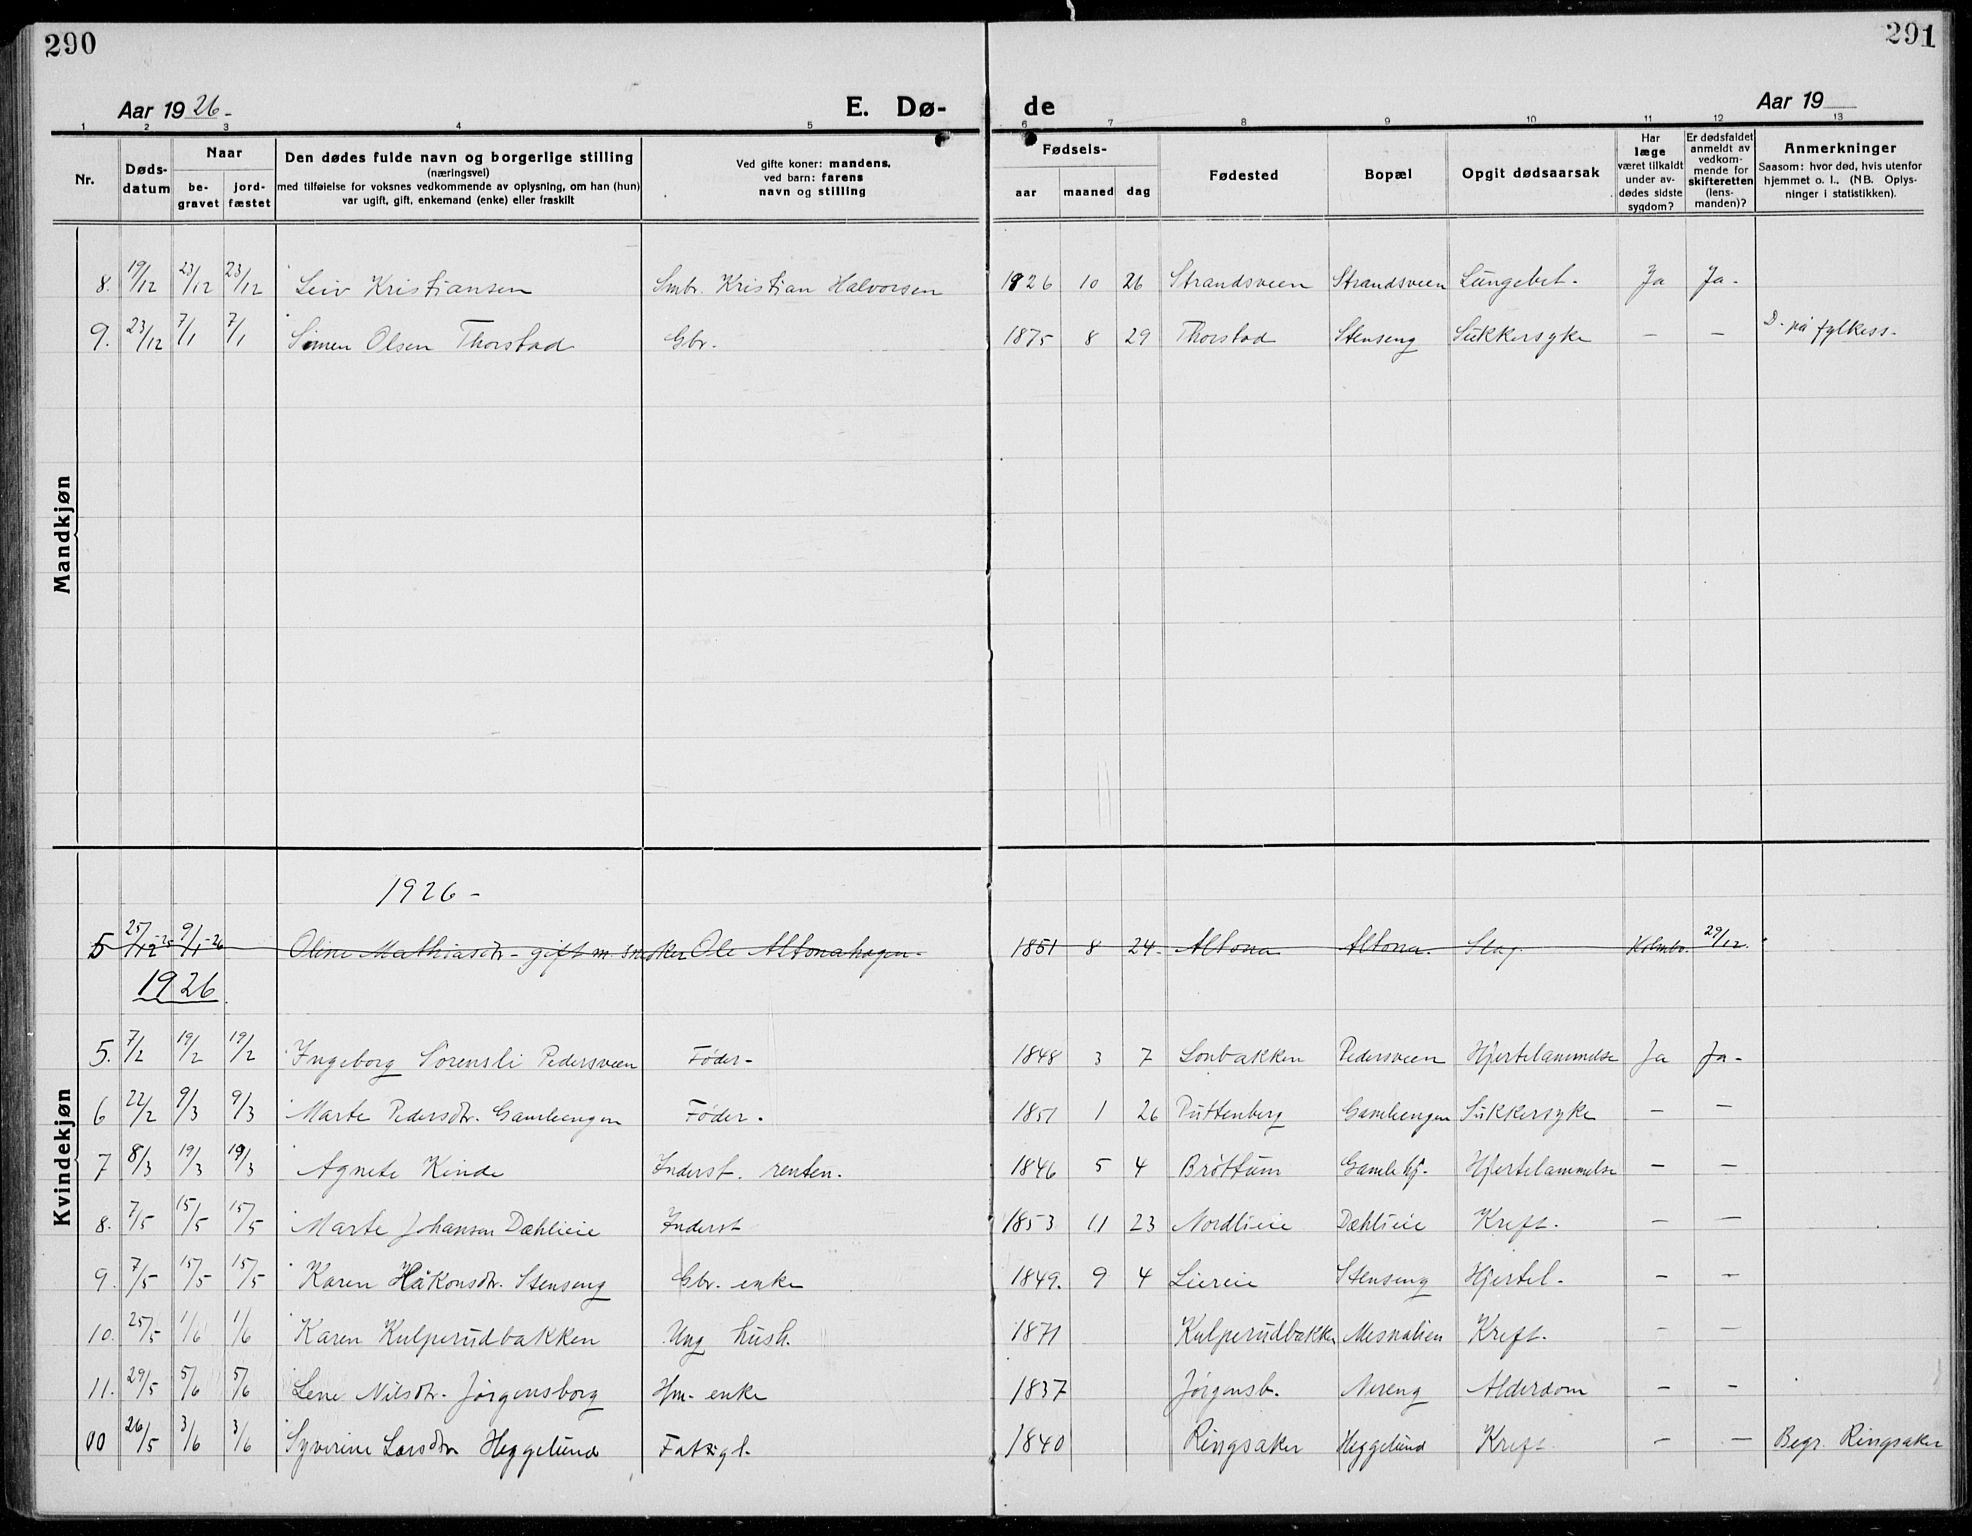 290
291
Aar 1926-
E. Dø-
de
Aar 19
1 2 3 4 5 6 7 8 9 10 11 12 13
Nr.
Døds-
datum
Naar
be-
gravet
jord-
fæstet
Den dødes fulde navn og borgerlige stilling
(næringsvei)
med tilføielse for voksnes vedkommende av oplysning, om han (hun)
var ugift, gift, enkemand (enke) eller fraskilt
Ved gifte koner: mandens,
ved barn: farens
navn og stilling
Fødsels-
aar maaned dag
Fødested
Bopæl
Opgit dødsaarsak
Har
læge
været tilkaldt
under av-
dødes sidste
sygdom?
Er dødsfaldet
anmeldt av
vedkom-
mende for
skifteretten
(lens-
manden)?
Anmerkninger
Saasom: hvor død, hvis utenfor
hjemmet o. l., (NB. Oplys-
ninger i statistikken).
Mandkjøn
8. 19/12 23/12 23/12 Leiv Kristiansen Smbr. Kristian Halvorsen 1926 10 26 Strandsveen Strandsveen Lungebet. Ja Ja-
9. 23/12 7/1 7/1 Simen Olsen Thorstad Gbr. 1875 8 29 Thorstad Stenseng Sukkersyke — — D. på fylkess.
Kvindekjøn
1926-
5 25/12-25 9/1-26 Oline Mathiasdr- gift m snekker Ole Altonahagen- 1851 8 24. Altona Altona. Slag. Holmbo. 29/12.
1926
5. 7/2 19/2 19/2 Ingeborg Sørensli Pedersveen Føder- 1848 3 7 Lonbakken Pedersveen Hjertelammelse Ja Ja-
6 22/2 9/3 9/3 Marte Pedersdtr. Gamleengen Føder. 1851 1 26 Puttenberg Gamleengen Sukkersyke — —
7 8/3 19/3 19/3 Agnete Kinde Inderst. renten. 1846 5 4 Brøttum Gamlehj. Hjertelammelse — —
8. 7/5 15/5 15/5 Marte Johansen Dæhlieie Inderst 1853 11 23 Nordlieie Dæhlieie Kreft. — —
9. 7/5 15/5 15/5 Karen Håkonsdtr. Stenseng Gbr. enke 1849. 9 4 Liereie Stenseng Hjertel. — —
10. 25/5 1/6 1/6 Karen Kulperudbakken Ung hush. 1871 Kulperudbakken Mesnalien Kreft. — —
11. 29/5 5/6 5/6 Lene Nilsdtr. Jørgensborg Hm- enke 1837 Jørgensb. Nereng Alderdom — —
00 26/5 3/6 3/6 Syverine Larsdtr Heggelund Fattigl. 1840 Ringsaker Heggelund Kreft. — — Begr. Ringsaker